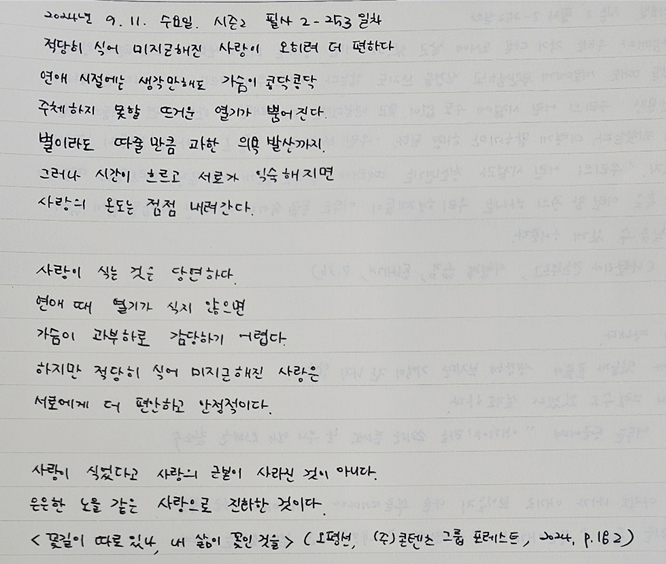 2024년 9. 11. 수요일. 시즌2 필사 2-253일차
적당히 식어 미지근해진 사랑이 오히려 더 편하다.
연애 시절에는 생각만해도 가슴이 콩닥콩닥
주체하지 못할 뜨거운 열기가 뿜어진다.
별이라도 따줄 만큼 과한 의욕 발산까지.
그러나 시간이 흐르고 서로가 익숙해지면
사랑의 온도는 점점 내려간다.
사랑이 식는 것은 당연하다.
연애 때 열기가 식지 않으면
가슴이 과부하로 감당하기 어렵다.
하지만 적당히 식어 미지근해진 사랑은
서로에게 더 편안하고 안정적이다.
사랑이 식었다고 사랑의 근본이 사라진 것이 아니다.
은은한 노을 같은 사랑으로 진화한 것이다.
<꽃길이 따로 있나, 내 삶이 꽃인 것을> (오평선, (주)콘텐츠 그룹 포레스트, 2024, p.182)